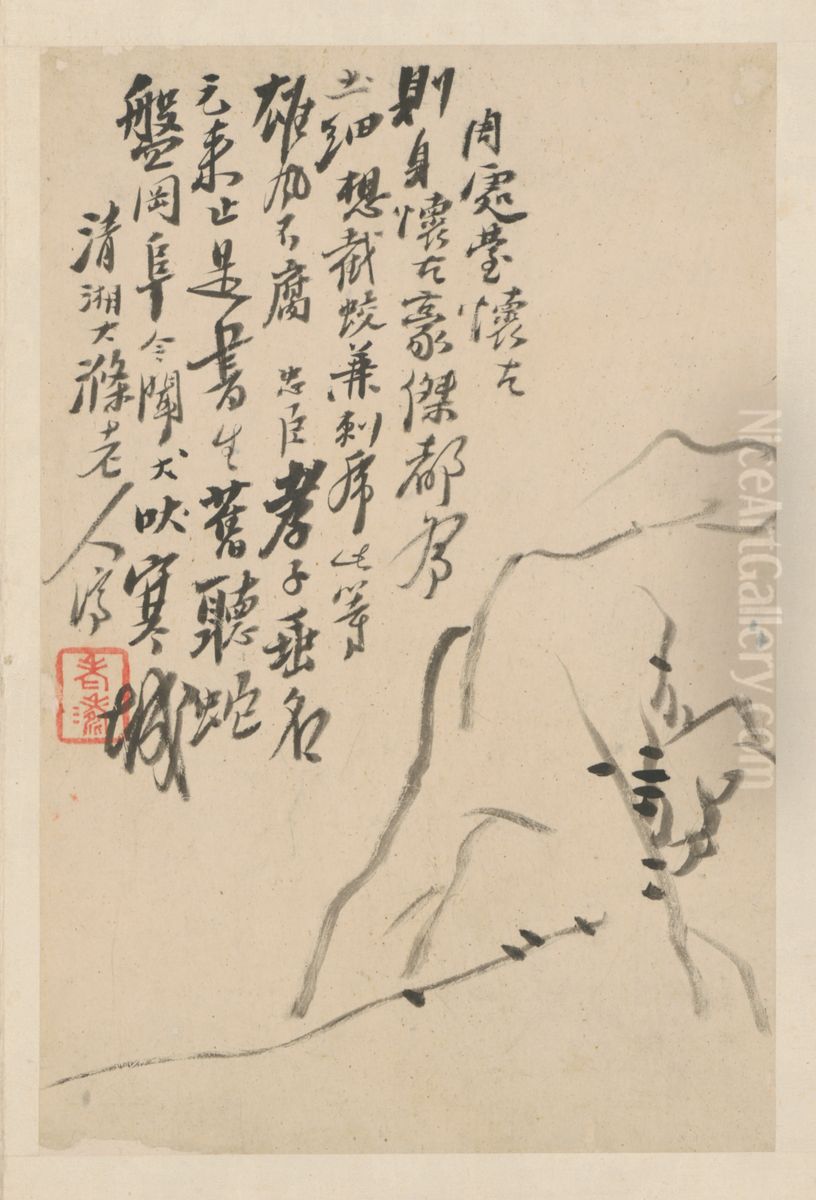 周處臺懷古
則身懷古豪傑都為
土細想截蛟兼刺虎此等
雄風不腐 忠臣孝子垂名
元來止是書生舊聽蛇
盤岡阜今聞犬吠寒城
清湘大滌老人濟
老濤
NiceArtGallery.com